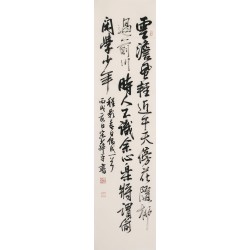 雲澹風輕近午天傍花隨柳
過前川時人不識余心樂將謂偷
閒學少年
程顥春日偶成一首
丙戌 日 書